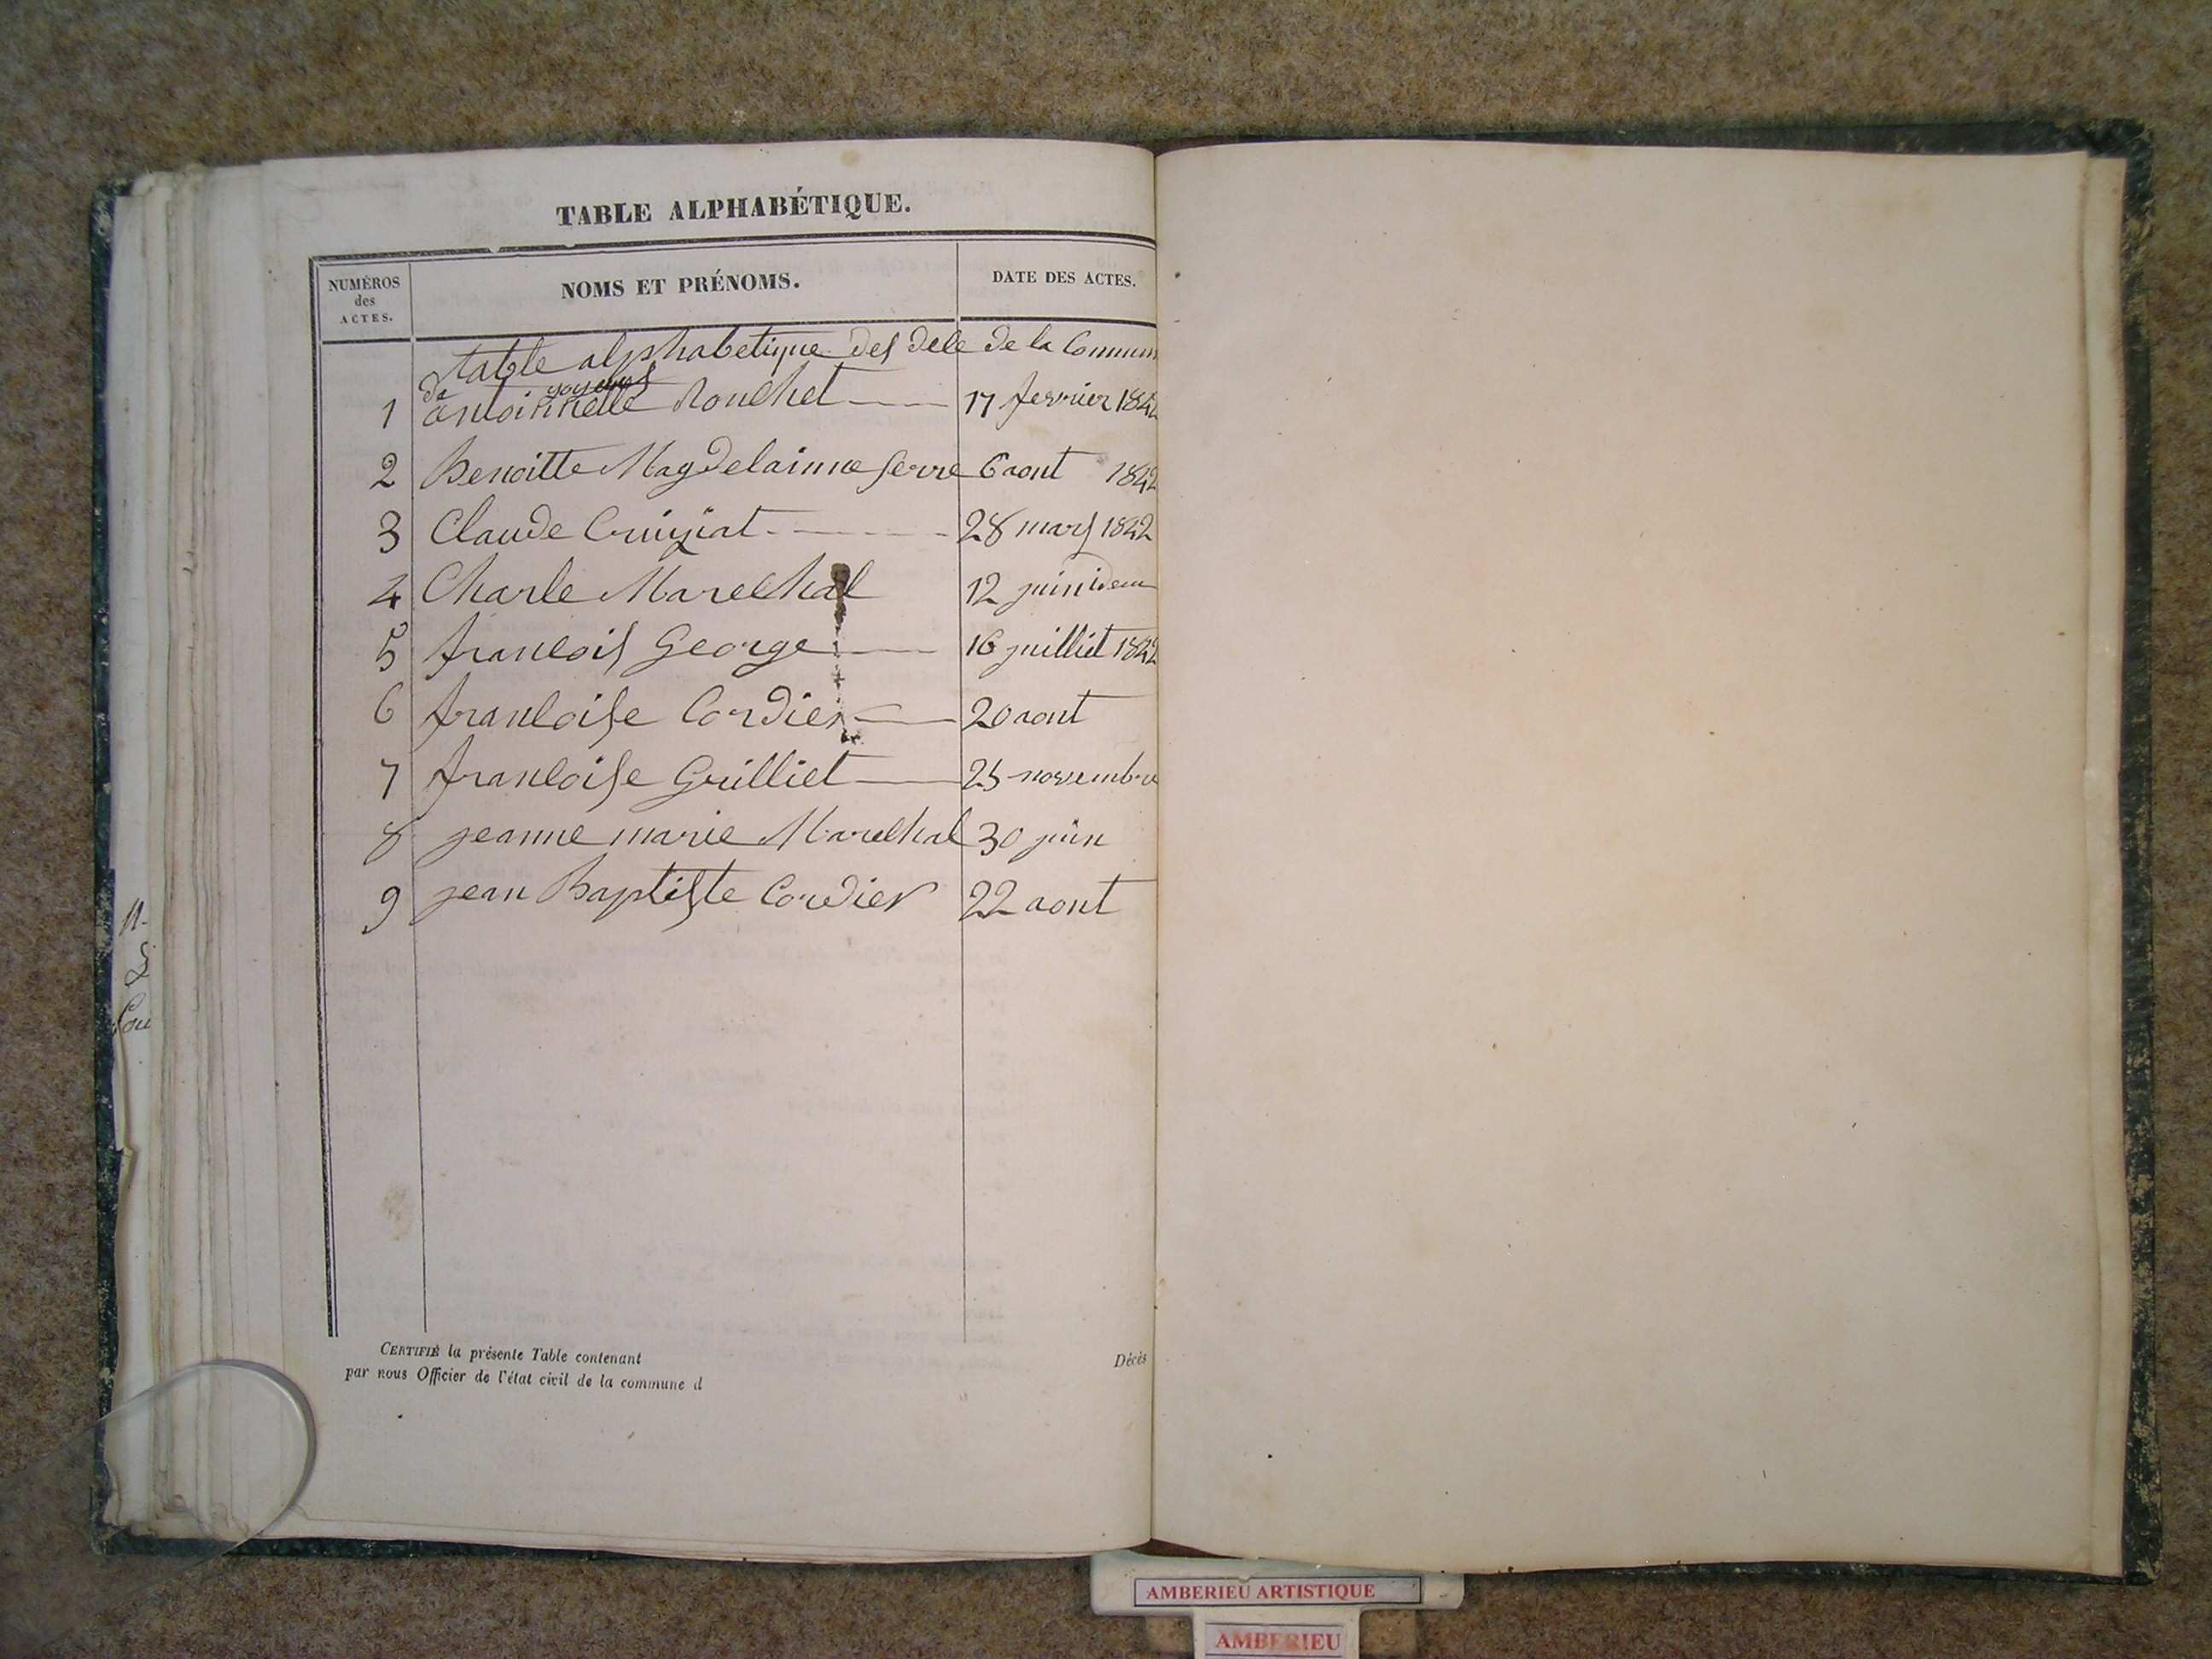 TABLE ALPHABÉTIQUE.
NUMÉROS des ACTES.
NOMS ET PRÉNOMS.
DATE DES ACTES.
table alphabetique des dele de la Commun
de
1 antoinnette Rouchet 17 fevrier 1842
2 Benoitte Magdelainne Serre 6 aout 1842
3 Claude Cruiziat 28 mars 1842
4 Charle Marechal 12 juin idem
5 francois George 16 juilliet 1842
6 francoise Cordier 20 aout
7 francoise Grilliet 25 novembre
8 jeanne marie Marechal 30 juin
9 jean Baptiste Cordier 22 aout
CERTIFIÉ la présente Table contenant Décès
par nous Officier de l'état civil de la commune d
AMBERIEU ARTISTIQUE
AMBERIEU